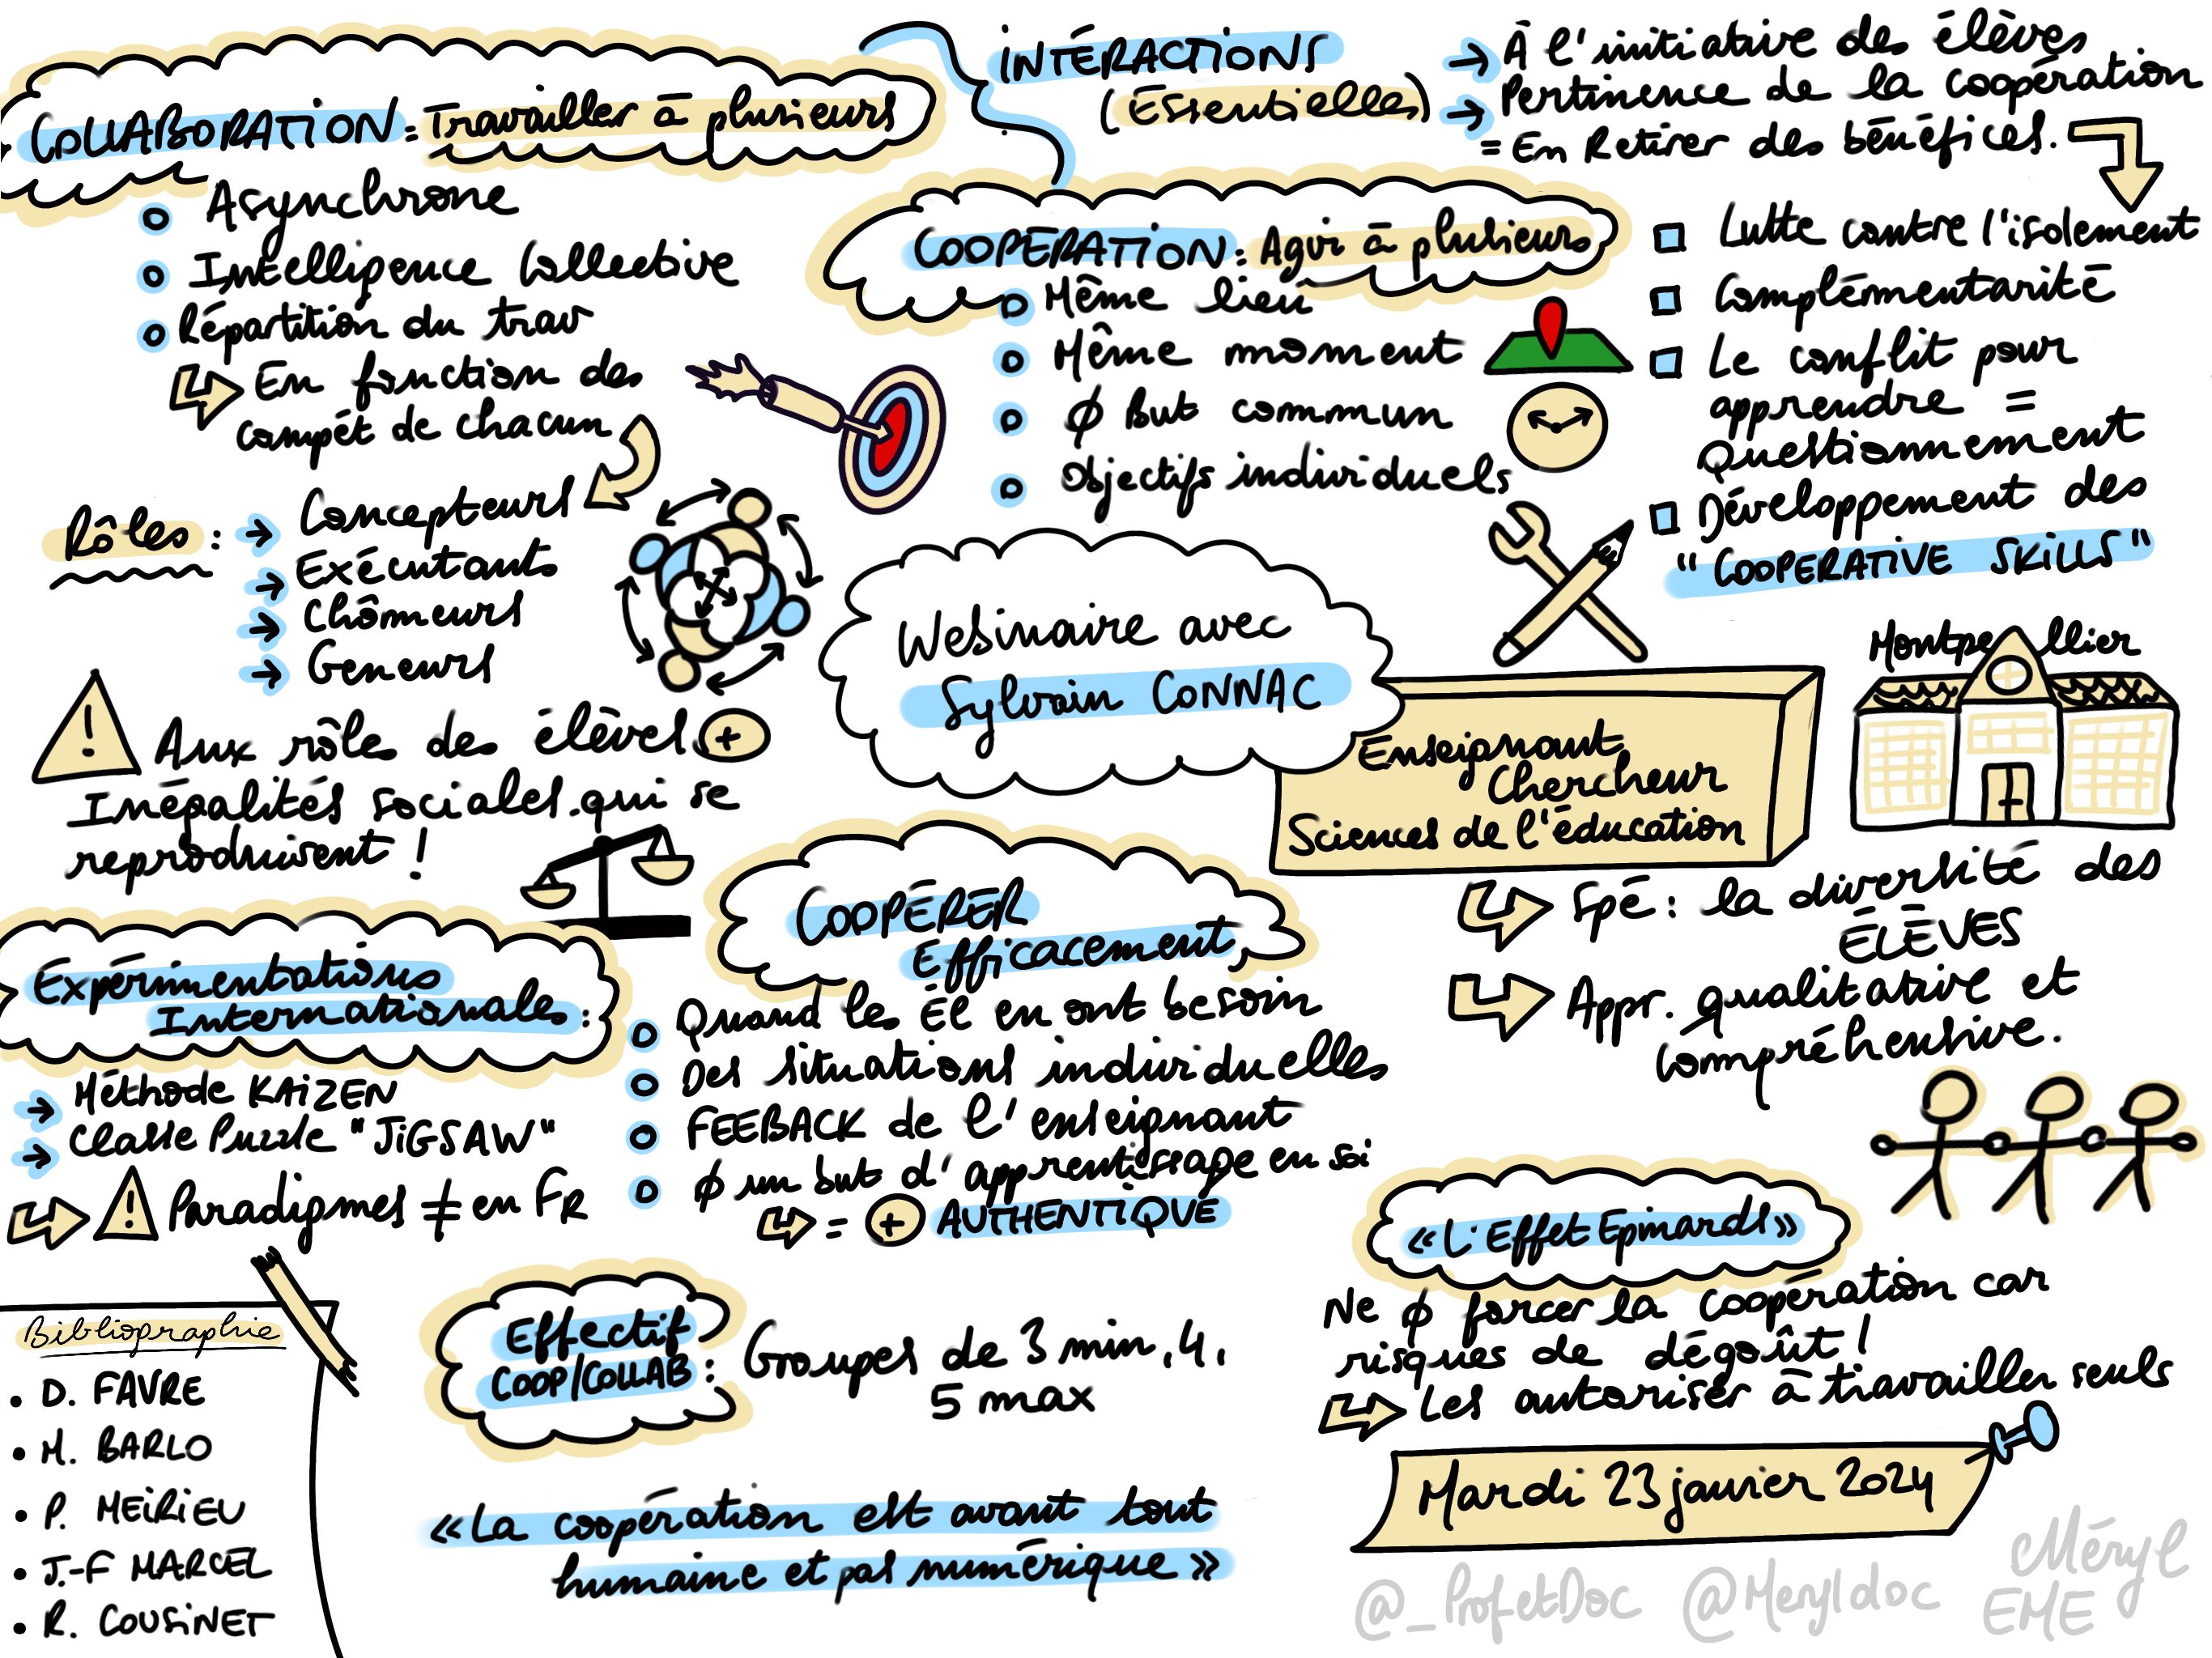 COLLABORATION = Travailler à plusieurs
Asynchrone
Intelligence Collective
Répartition du trav
En fonction des
compét de chacun
Rôles :
Concepteurs
Exécutants
Chômeurs
Geneurs
Aux rôle des élèves +
Inégalités sociales qui se
reproduisent !
INTÉRACTIONS
(Essentielles)
À l'initiative des élèves
Pertinence de la coopération
= En Retirer des bénéfices.
COOPÉRATION : Agir à plusieurs
Même lieu
Même moment
Ø But commun
Objectifs individuels
Lutte contre l'isolement
Complémentarité
Le conflit pour
apprendre =
Questionnement
Développement des
"COOPERATIVE SKILLS"
Webinaire avec
Sylvain CONNAC
Enseignant
Chercheur
Sciences de l'éducation
Montpellier
Spé : la diversité des
ÉLÈVES
Appr. qualitative et
compréhensive.
Expérimentations
Internationales :
Méthode KAIZEN
Classe Puzzle "JIGSAW"
Paradigmes ≠ en FR
COOPÉRER
Efficacement,
Quand les Él en ont besoin
Des situations individuelles
FEEBACK de l'enseignant
Ø un but d'apprentissage en soi
= + AUTHENTIQUE
Bibliographie
• D. FAVRE
• M. BARLO
• P. MEIRIEU
• J.-F MARCEL
• R. COUSINET
Effectif
COOP/COLLAB : Groupes de 3 min, 4,
5 max
«La coopération est avant tout
humaine et pas numérique»
«L'Effet Epinards»
Ne Ø forcer la coopération car
risques de dégoût !
Les autoriser à travailler seuls
Mardi 23 janvier 2024
@_ProfetDoc @Meryldoc
Méryl
EME